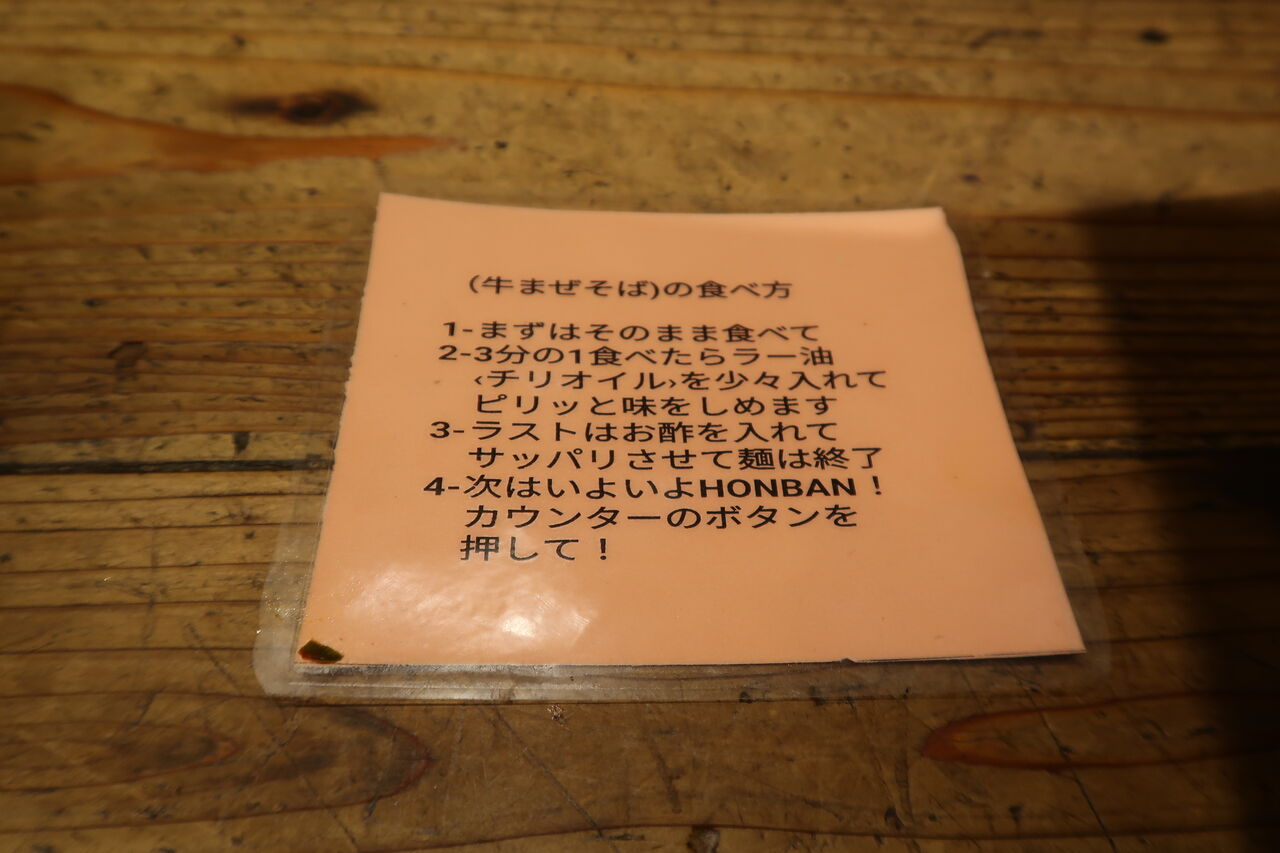 (牛まぜそば)の食べ方
1-まずはそのまま食べて
2-3分の1食べたらラー油
‹チリオイル›を少々入れて
ピリッと味をしめます
3-ラストはお酢を入れて
サッパリさせて麺は終了
4-次はいよいよHONBAN！
カウンターのボタンを
押して！